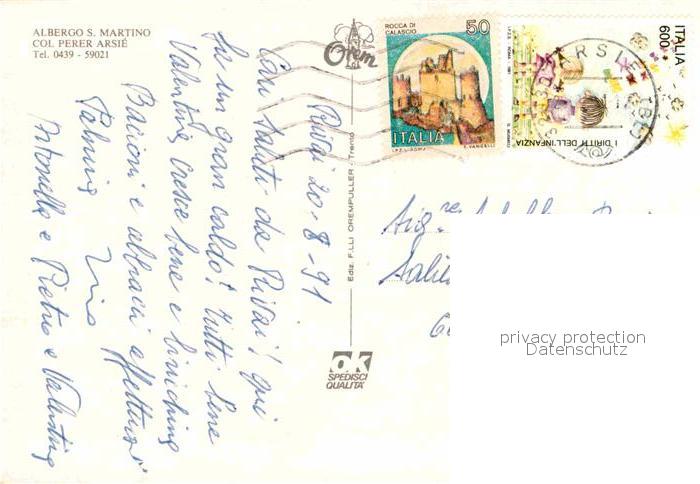 ALBERGO S. MARTINO
COL PERER ARSIÉ
Tel. 0439 - 59021
Rivai 20-8-91
Cari saluti da Rivai! Qui
fa un gran caldo! Tutti bene
Valentina cresce bene e
Bacioni e abbracci affettuosi
Palmira
Antonella e Pietro e Valentina
Orem
Ediz. F.LLI OREMPULLER - Trento
OK
SPEDISCI
QUALITÀ
ROCCA DI
CALASCIO
50
ITALIA
I.P.Z.S. ROMA
E. VANGELLI
ITALIA
600
I DIRITTI DELL'INFANZIA
ARSIE
Sig.re
privacy protection
Datenschutz